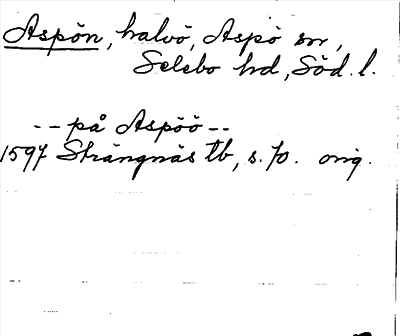 Aspön, halvö, Aspö sn,
Selebo hd, Söd. l.
-- på Aspöö --
1597 Strängnäs tb, s. 70. orig.